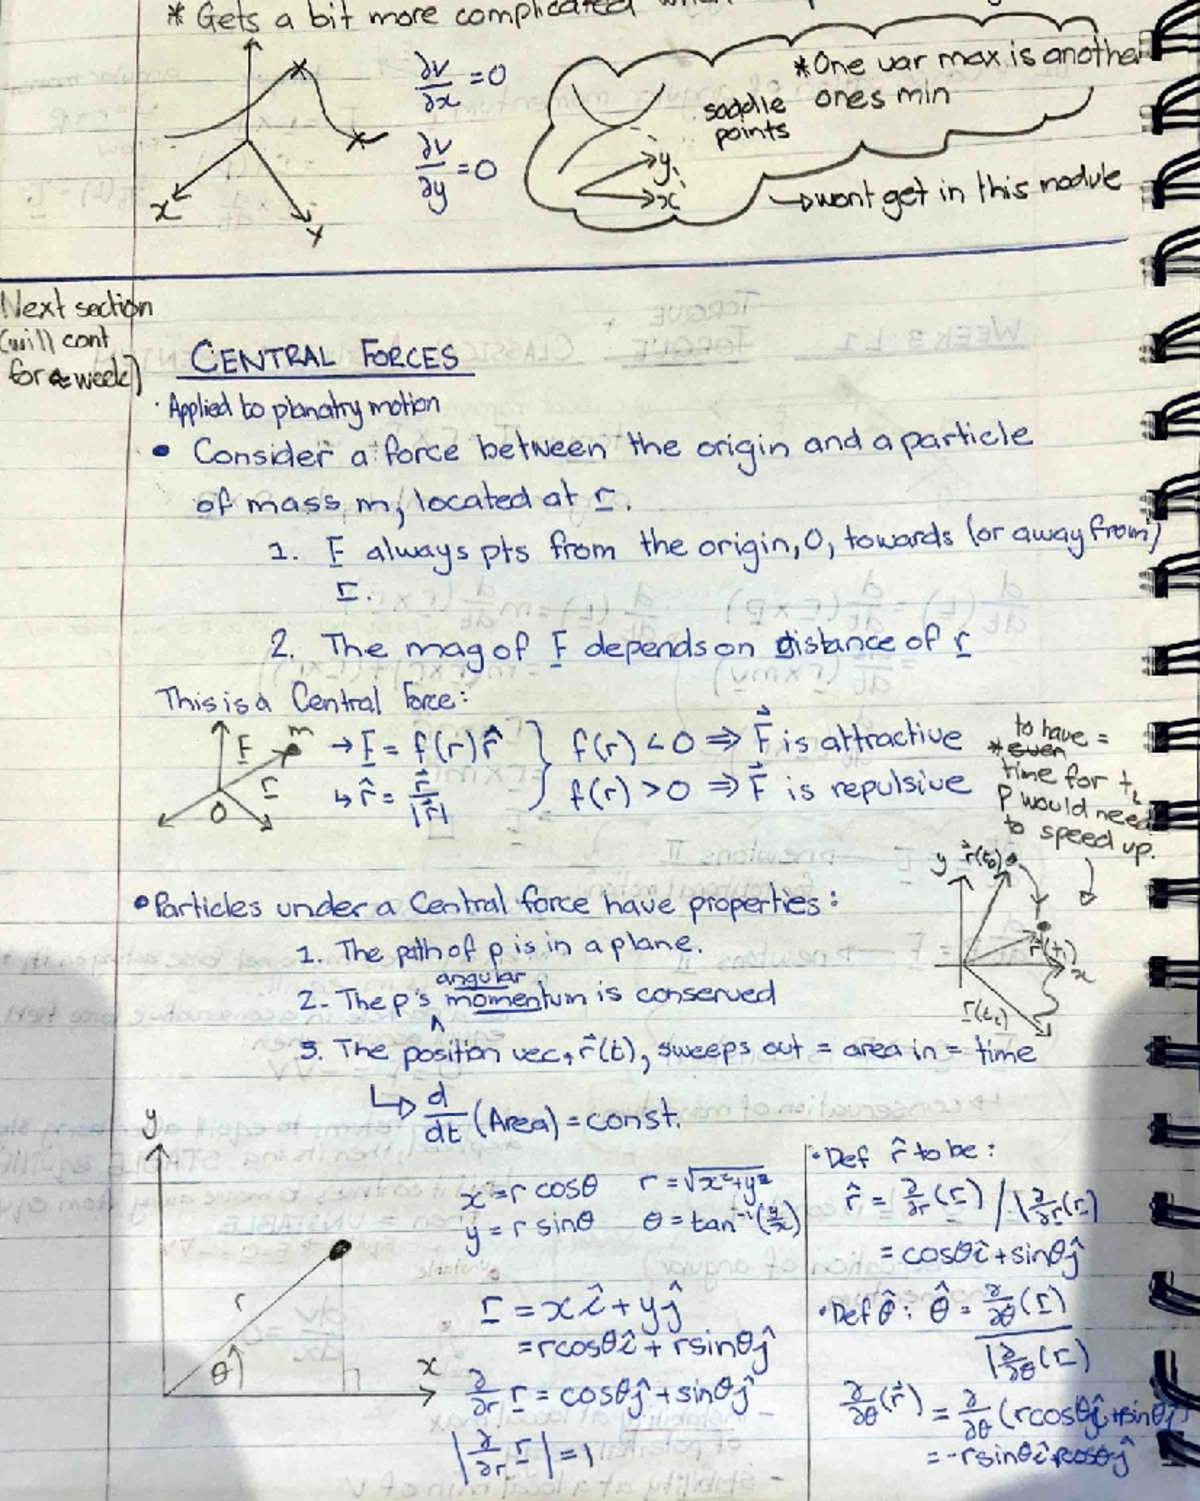 * Gets a bit more complicated
∂V/∂x = 0
∂V/∂y = 0
x
y
*One var max is another
ones min
saddle
points
y
x
→wont get in this module
Next section
(will cont
for a week)
CENTRAL FORCES
· Applied to planatry motion
• Consider a force between the origin and a particle
of mass m, located at r.
1. F always pts from the origin, O, towards (or away from)
r.
2. The mag of F depends on distance of r
This is a Central Force:
F m r O
→ F = f(r) r̂ } f(r) < 0 ⇒ F⃗ is attractive
↳ r̂ = r⃗/|r⃗| } f(r) > 0 ⇒ F⃗ is repulsive
to have =
* even
time for t₂
p would need
to speed up.
• Particles under a Central force have properties:
1. The path of p is in a plane.
angular
2. The p's ^ momentum is conserved
3. The position vec, r⃗(t), sweeps out = area in = time
↳ d/dt (Area) = const.
y r⃗(t₀)
r⃗(t₁) x
r(t₂)
y
r
θ
x
x = r cosθ r = √x²+y²
y = r sinθ θ = tan⁻¹(y/x)
r = xî + yĵ
= rcosθî + rsinθĵ
∂/∂r r = cosθĵ + sinθĵ
|∂/∂r r| = 1
· Def r̂ to be:
r̂ = ∂/∂r (r) / |∂/∂r (r)|
= cosθî + sinθĵ
· Def θ̂: θ̂ = ∂/∂θ (r) / |∂/∂θ (r)|
∂/∂θ (r⃗) = ∂/∂θ (rcosθĵ + rsinθĵ)
= -rsinθî rcosθĵ